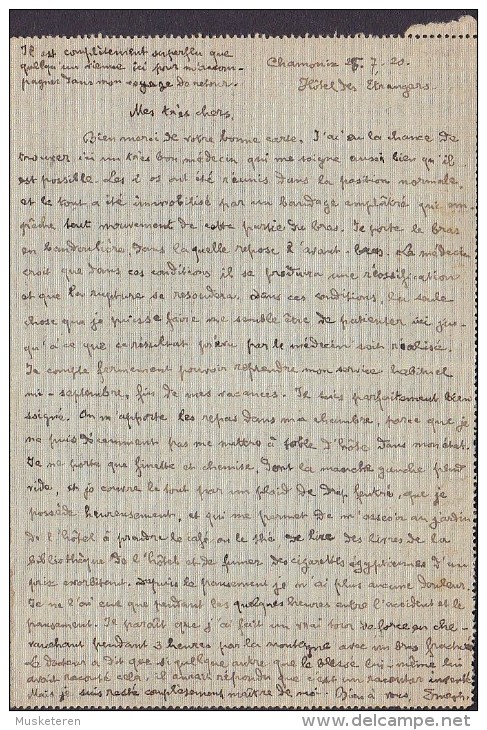 Il est complètement superflu que
quelqu'un vienne ici pour m'accom-
pagner dans mon voyage de retour.
Chamonix 25.7.20.
Hôtel des Etrangers.
Mes très chers,
Bien merci de votre bonne carte. J'ai eu la chance de
trouver ici un très bon médecin qui me soigne aussi bien qu'il
est possible. Les 2 os ont été réunis dans la position normale,
et le tout a été immobilisé par un bandage emplâtré qui em-
pêche tout mouvement de cette partie du bras. Je porte le bras
en bandoulière, dans laquelle repose l'avant-bras. Le médecin
croit que dans ces conditions il se produira une réossification
et que la rupture se ressoudera. Dans ces conditions, la seule
chose que je puisse faire me semble être de patienter ici jus-
qu'à ce que ce résultat prévu par le médecin soit réalisé.
Je compte fermement pouvoir reprendre mon service habituel
mi-septembre, fin de mes vacances. Je suis parfaitement bien
soigné. On m'apporte les repas dans ma chambre, parce que je
ne puis décemment pas me mettre à table d'hôte dans mon état.
Je ne porte que finette et chemise, dont la manche gauche pend
vide, et je couvre le tout par un plaid de drap feutré, que je
possède heureusement, et qui me permet de m'asseoir au jardin
de l'hôtel à prendre le café ou le thé de lire des livres de la
bibliothèque de l'hôtel et de fumer des cigarettes égyptiennes d'un
prix exorbitant. Depuis le pansement je n'ai plus aucune douleur.
Je ne l'ai eue que pendant les quelques heures entre l'accident et le
pansement. Il paraît que j'ai fait un vrai tour de force en che-
vauchant pendant 3 heures par la montagne avec un bras fracturé
Le docteur a dit que si quelque autre que le blessé lui-même lui
avait raconté cela, il aurait répondu que c'est un racontar inventé.
Mais je suis resté complètement maître de moi. Bien à vous,
Musketeren
www.delcampe.net